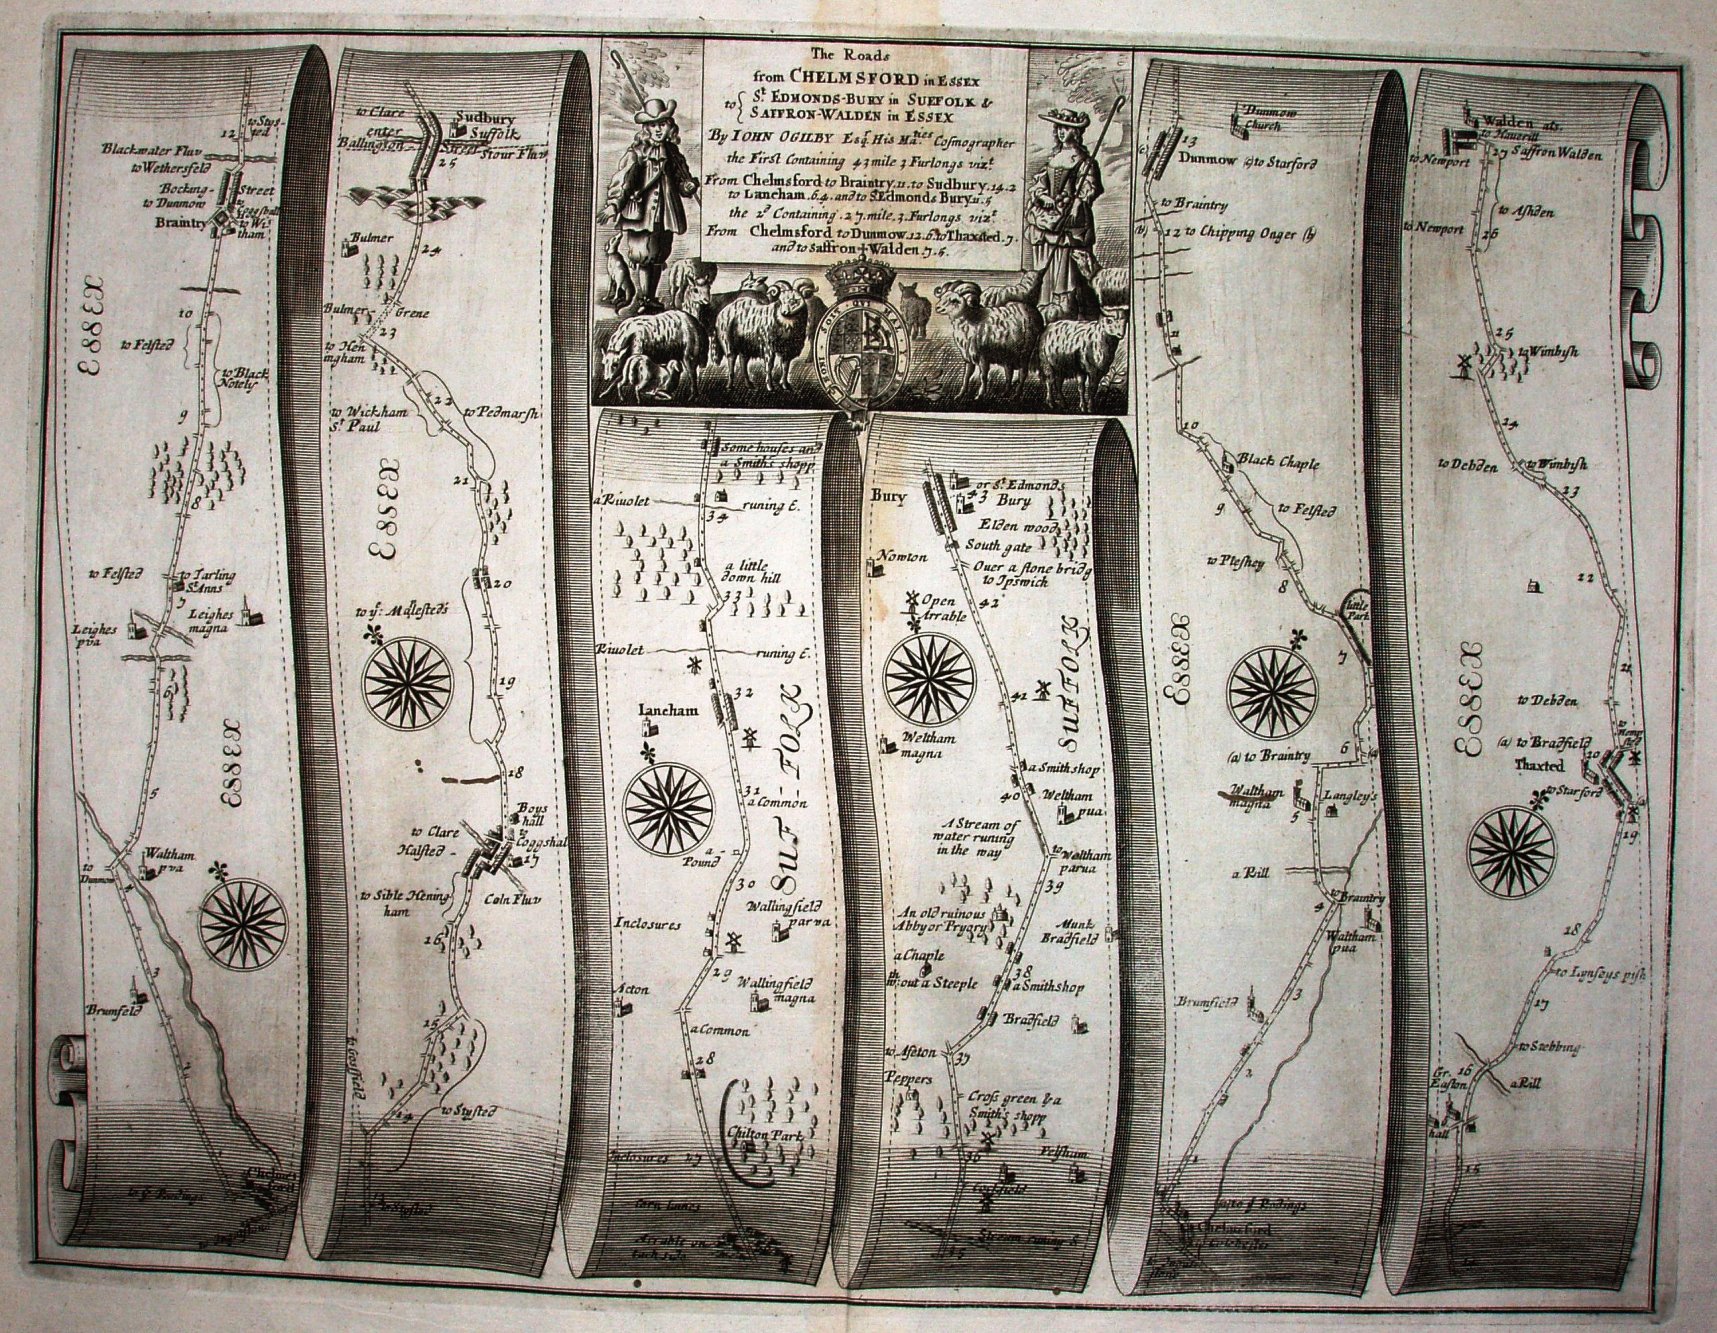 The Roads
from CHELMSFORD in ESSEX
to { St. EDMONDS-BURY in SUFFOLK &
SAFFRON-WALDEN in ESSEX
By IOHN OGILBY Esq. His Maties. Cosmographer
the First Containing 43 mile 3 Furlongs vizt.
From Chelmsford to Braintry. 11. to Sudbury. 14.2
to Lancham. 6.4. and to St. Edmonds Bury. 11.5
the 2d. Containing. 27. mile. 3. Furlongs vizt.
From Chelmsford to Dunmow. 12.6. to Thaxted. 7.
and to Saffron Walden. 7.5.
12
to Stysted
Blackwater Fluv
to Wethersfeld
Bocking Street
to Dunmow
Braintry
to Witham
10
to Felsted
to Black Notely
9
8
ESSEX
to Felsted
to Tarling
St. Anns
7
Leighes magna
Leighes pva
6
ESSEX
5
to Dunmow
Waltham pva
3
Brumfeld
2
Chelmsford
to Clare
Sudbury
enter Suffolk
Ballington Street
Stour Fluv
25
Bulmer
24
Bulmer Grene
23
to Henningham
22
to Wickham St. Paul
to Pedmarsh
21
ESSEX
20
to ye. Maplesteds
19
18
Boys hall
to Clare
to Coggshal
Halsted
17
to Sible Heningham
Coln Fluv
16
15
to Gosfield
14
to Stysted
to Stysted
Some houses and a Smiths shopp
a Rivolet runing E.
34
a little down hill
33
Rivolet runing E.
32
Lancham
SUFFOLK
31
a Common
a Pound
30
Wallingfield parva
Inclosures
29
Wallingfield magna
Acton
a Common
28
Chilton Park
Inclosures 27
Corn Lanes
Arrable on Each side
Bury
or St. Edmonds Bury
43
Elden wood
South gate
Over a stone bridg
to Ipswich
Nowton
42
Open Arrable
SUFFOLK
41
Weltham magna
a Smith shop
40
Weltham pua
A Stream of water runing in the way
to Waltham parva
39
An old ruinous Abby or Pryory
Munks Bradfield
a Chaple without a Steeple
38
a Smith shop
Bradfield
to Aseton
37
Peppers
Cross green & a Smith's shopp
36
Felsham
Stream runing E
35
13
Dunmow Church
(c) Dunmow (c) to Starford
to Braintry
(b) 12 to Chipping Onger (b)
11
10
Black Chaple
9
to Felsted
to Pleshey
8
Little Park
ESSEX
7
6 (a)
(a) to Braintry
Waltham magna
Langley's
5
a Rill
to Braintry
4
Waltham pua
3
Brumfield
2
1
to ye Rodings
Chelmsford
Walden als.
to Haverill
to Newport
27 Saffron Walden
to Ashden
to Newport
26
25
to Wimbish
24
to Debden
to Wimbish
23
22
ESSEX
21
to Debden
to Hempsted
(a) to Bradfield
20
Thaxted
to Starford
19
18
to Lynseys pish
17
to Stebbing
16
Gr. Easton
a Rill
hall
15